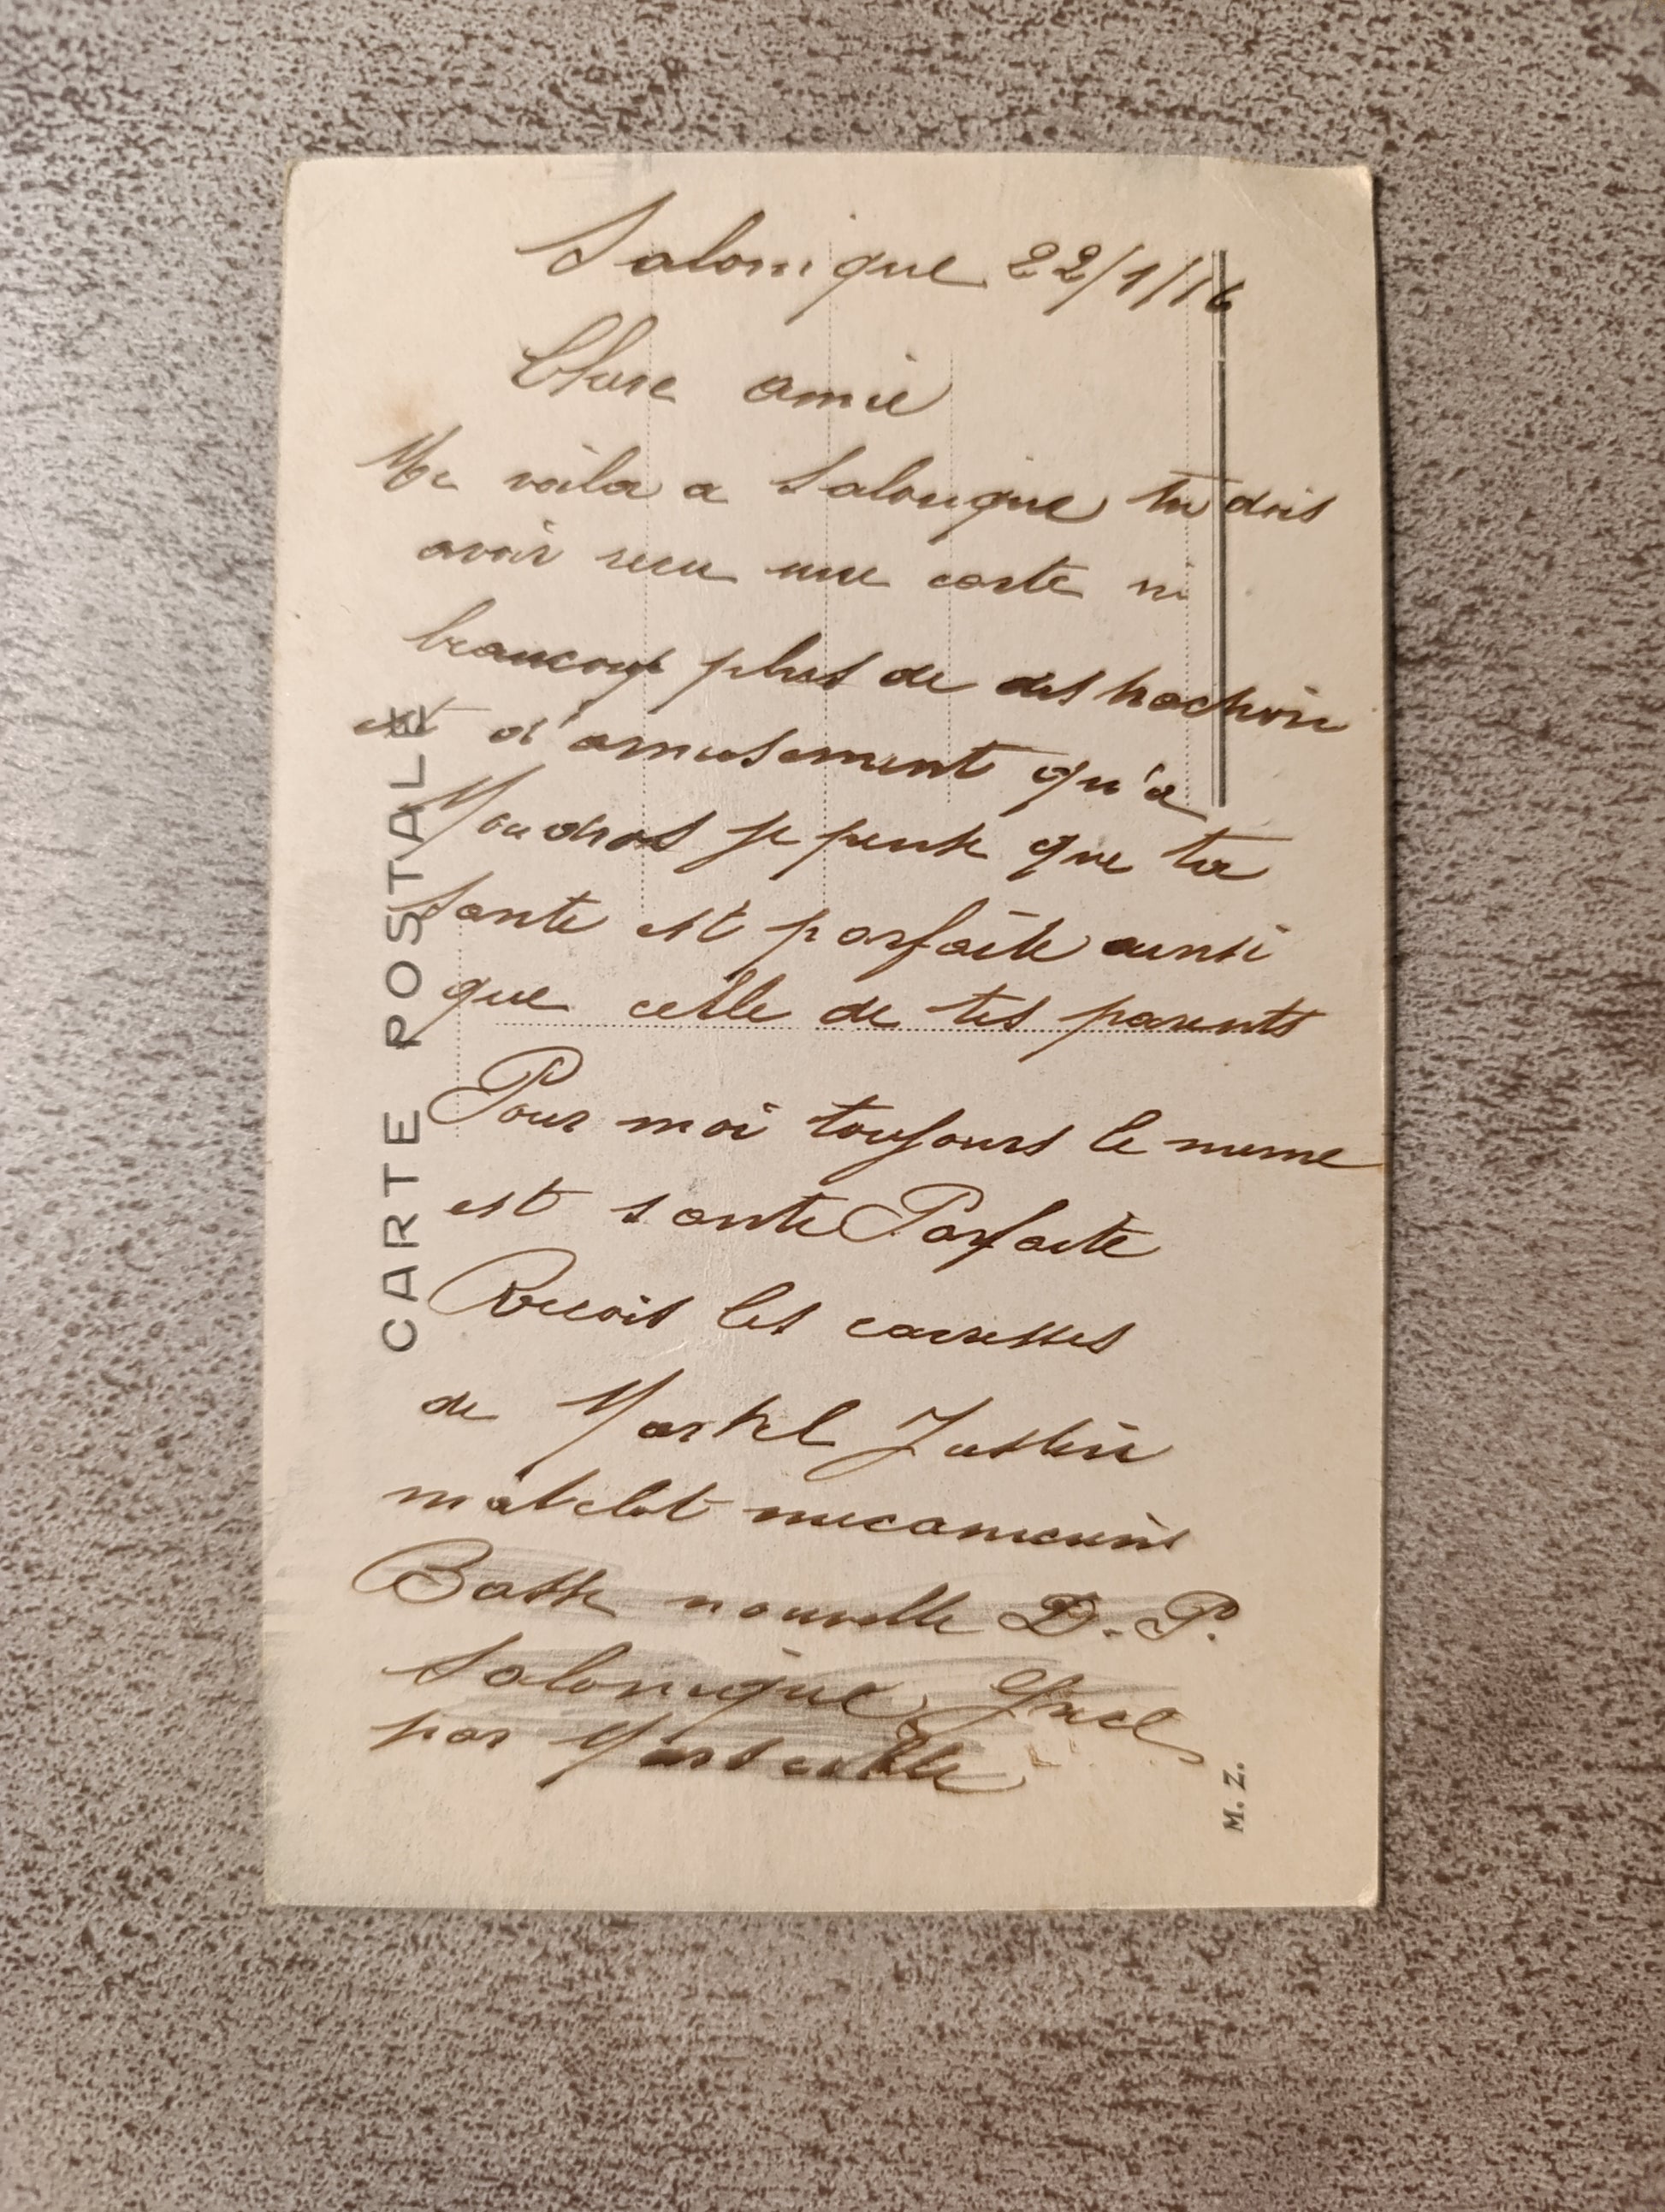 Salonique 22/1/16
Chere amie
Me voila a Salonique tu dois
avoir recu une carte ni
beaucoup plus de
et d'amusement qu'a
Moudros je pense que ta
sante est parfaite ainsi
que celle de tes parents
Pour moi toujours le meme
est sante Parfaite
Recois les caresses
de Martel Justin
matelot mecanicien
Basse nouvelle D. P.
Salonique
par Marseille
CARTE POSTALE
M. Z.